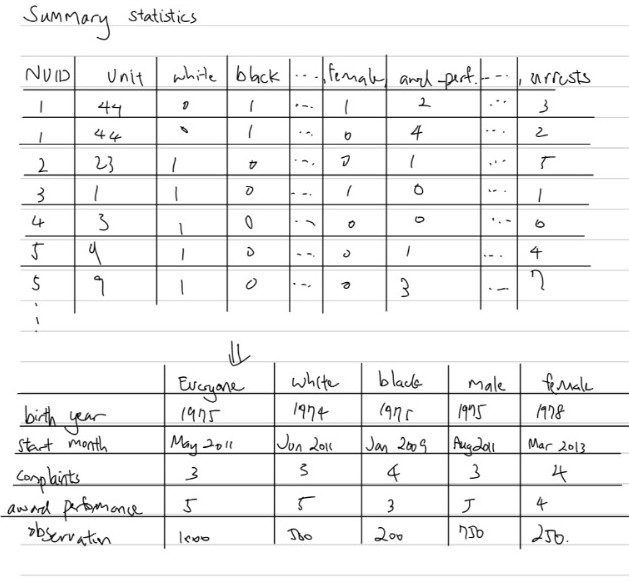 Summary statistics
NUID unit white black ... female awd-perf. --- arrests
1 44 0 1 ... 1 2 ... 3
1 44 0 1 ... 0 4 ... 2
2 23 1 0 ... 0 1 ... 5
3 1 1 0 ... 1 0 ... 1
4 3 1 0 ... 0 0 ... 0
5 9 1 0 ... 0 1 ... 4
5 9 1 0 ... 0 3 ... 7
⇓
Everyone white black male female
birth year 1975 1974 1975 1975 1978
start month May 2011 Jun 2011 Jan 2009 Aug 2011 Mar 2013
complaints 3 3 4 3 4
award performance 5 5 3 5 4
observation 1000 500 200 750 250.